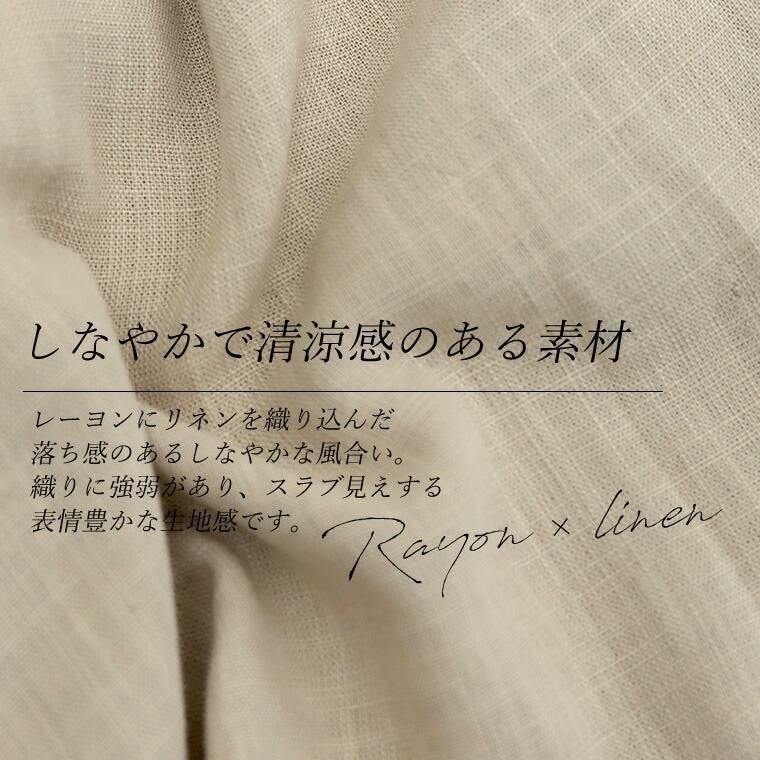 しなやかで清涼感のある素材
レーヨンにリネンを織り込んだ
落ち感のあるしなやかな風合い。
織りに強弱があり、スラブ見えする
表情豊かな生地感です。
Rayon × linen